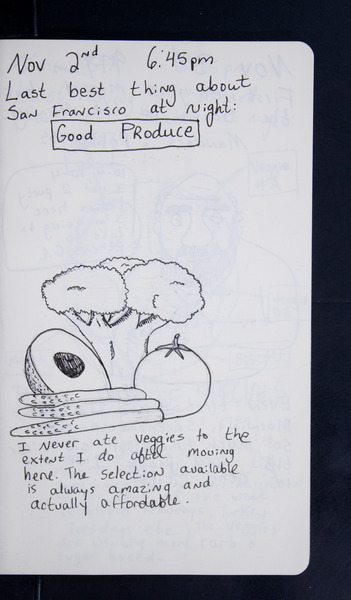 Nov 2nd 6:45pm
Last best thing about
San Francisco at night:
Good Produce
I never ate veggies to the
extent I do after moving
here. The selection available
is always amazing and
actually affordable.